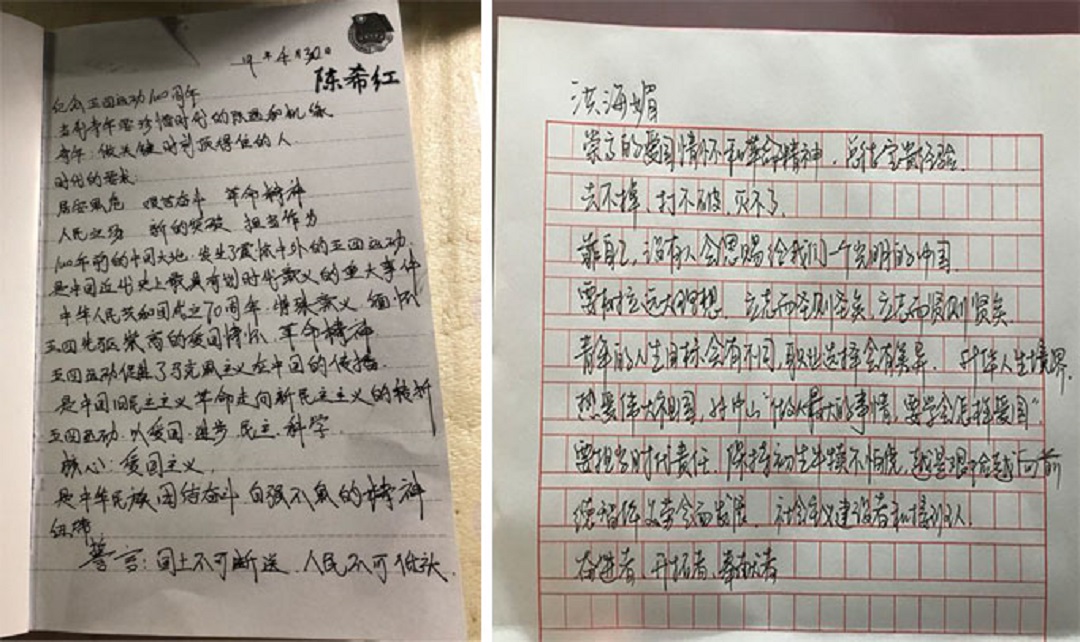 19年4月30日
陈希红
纪念五四运动100周年
当前青年需珍惜时代的际遇和机缘
青年:做关键时刻顶得住的人
时代的要求:
居安思危 艰苦奋斗 革命精神
人民立场 新的突破 担当作为
100年前的中国大地,发生了震惊中外的五四运动.
是中国近代史上最具有划时代意义的重大事件
中华人民共和国成立70周年.特殊意义 缅怀
五四先驱崇高的爱国情怀、革命精神
五四运动促进了马克思主义在中国的传播.
是中国旧民主主义革命走向新民主主义的转折
五四运动.以爱国.进步.民主.科学.
核心:爱国主义.
是中华民族团结奋斗 自强不息的精神
纽带
誓言:国土不可断送、人民不可低头.
洪海媚
崇高的爱国情怀和革命精神.总结宝贵经验.
去不掉,打不破,灭不了.
靠自己,没有人会恩赐给我们一个光明的中国.
要树立远大理想. 立志而圣则圣矣,立志而贤则贤矣.
青年的人生目标会有不同,职业选择会有差异.
人生境界.
热爱伟大祖国,孙中山“做人最大的事情,要学会怎样爱国”
要担当时代责任.保持初生牛犊不怕虎,越是艰险越向前
德智体美劳全面发展. 社会主义建设者和接班人.
奋进者、开拓者、奉献者